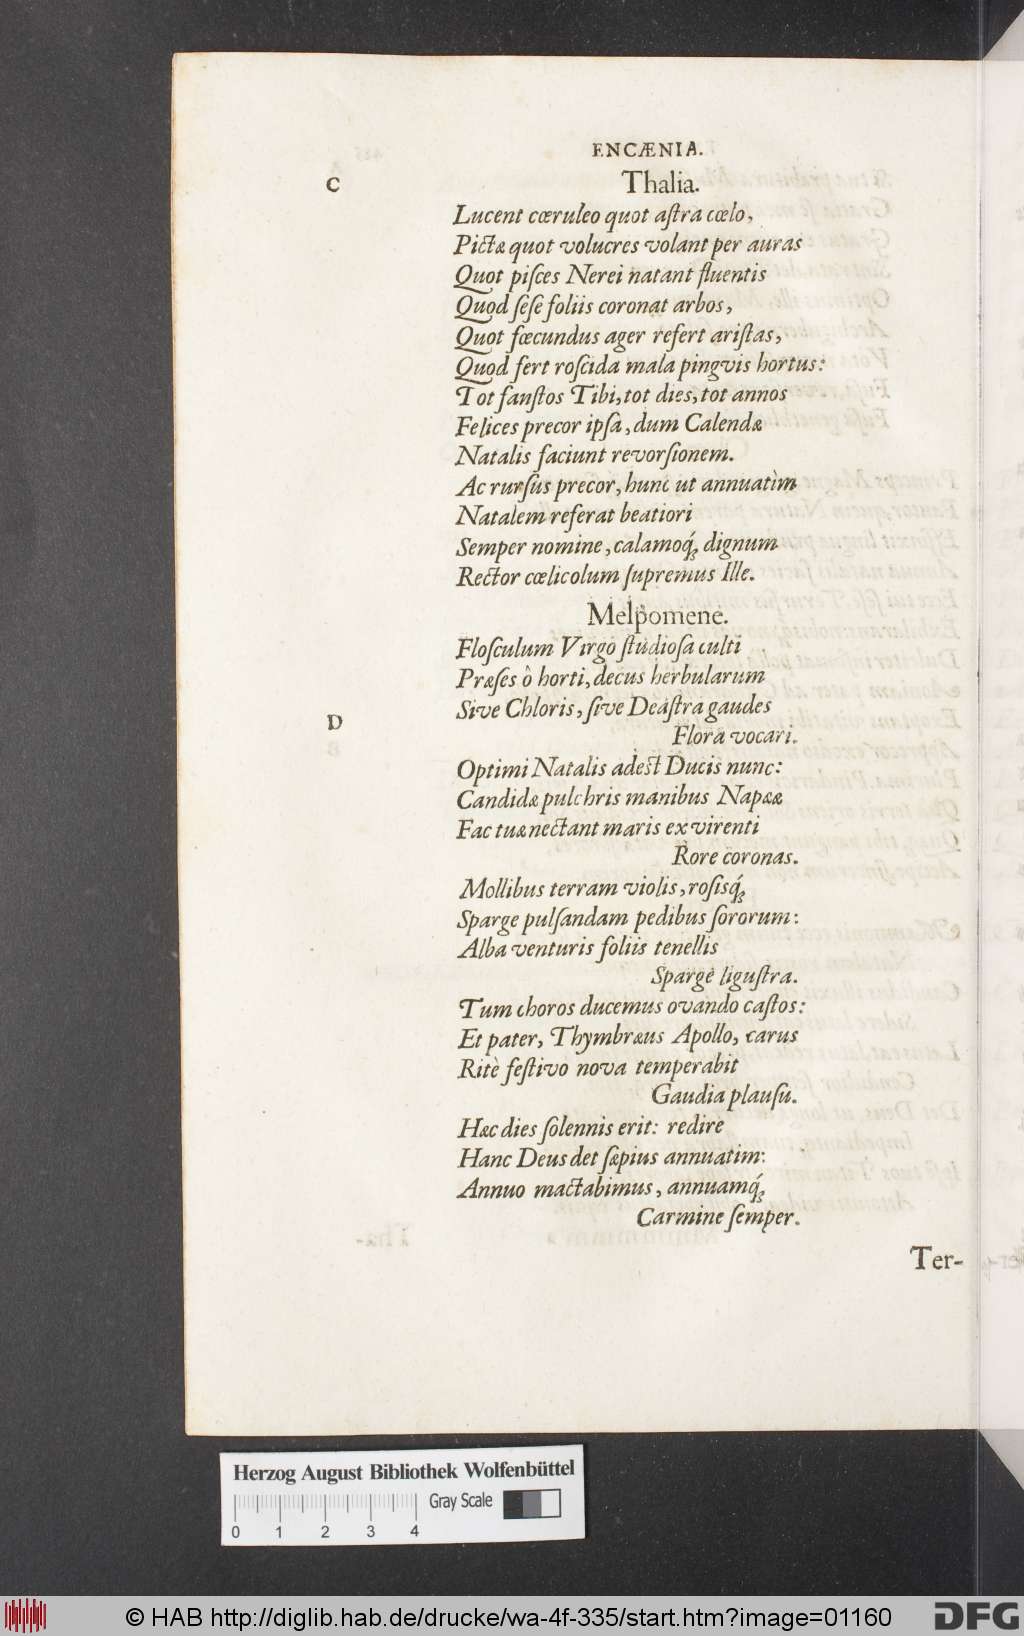 ENCÆNIA.
C
Thalia.
Lucent cœruleo quot aſtra cœlo,
Pictæ quot volucres volant per auras
Quot piſces Nerei natant fluentis
Quod ſeſe foliis coronat arbos,
Quot fœcundus ager refert ariſtas,
Quod fert roſcida mala pingvis hortus:
Tot fanſtos Tibi, tot dies, tot annos
Felices precor ipſa, dum Calendæ
Natalis faciunt revorſionem.
Ac rurſus precor, hunc ut annuatìm
Natalem referat beatiori
Semper nomine, calamoq́; dignum
Rector cœlicolum ſupremus Ille.
Melpomene.
Floſculum Virgo ſtudioſa culti
Præſes ô horti, decus herbularum
Sive Chloris, ſive Deaſtra gaudes
D
Flora vocari.
Optimi Natalis adeſt Ducis nunc:
Candidæ pulchris manibus Napææ
Fac tuæ nectant maris ex virenti
Rore coronas.
Mollibus terram violis, roſisq́;
Sparge pulſandam pedibus ſororum:
Alba venturis foliis tenellis
Sparge liguſtra.
Tum choros ducemus ovando caſtos:
Et pater, Thymbræus Apollo, carus
Ritè feſtivo nova temperabit
Gaudia plauſu.
Hæc dies ſolennis erit: redire
Hanc Deus det ſæpius annuatim:
Annuo mactabimus, annuamq́;
Carmine ſemper.
Ter-
Herzog August Bibliothek Wolfenbüttel
Gray Scale
0 1 2 3 4
© HAB http://diglib.hab.de/drucke/wa-4f-335/start.htm?image=01160
DFG